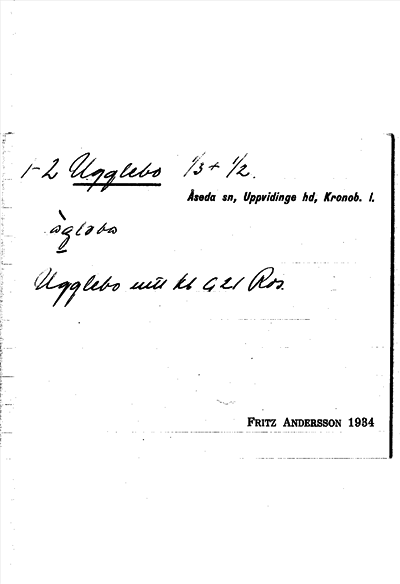 1-2 Ugglebo 1/3 + 1/2.
Åseda sn, Uppvidinge hd, Kronob. l.
Ugglebo utt kb G 21 Ros.
FRITZ ANDERSSON 1934